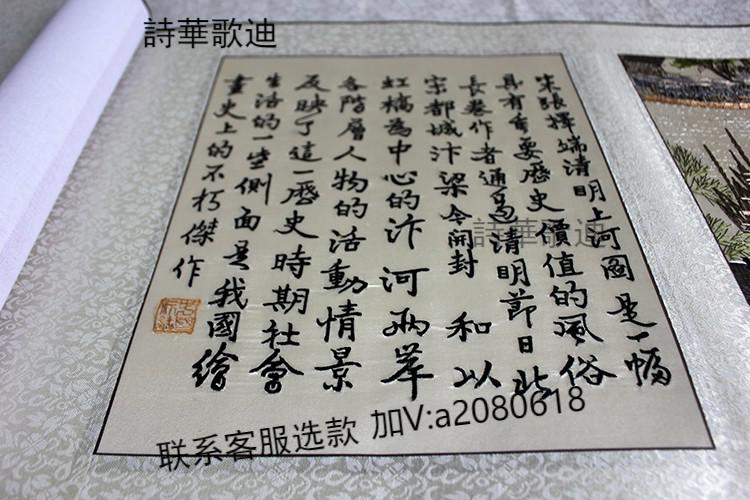 詩華歌迪
宋張擇端清明上河圖是一幅
具有重要歷史價值的風俗
長卷作者通過清明節日北
宋都城汴梁今開封 和以
虹橋為中心的汴河兩岸
各階層人物的活動情景
反映了這一歷史時期社會
生活的一些側面是我國繪
畫史上的不朽傑作
詩華歌迪
联系客服选款 加V:a2080618